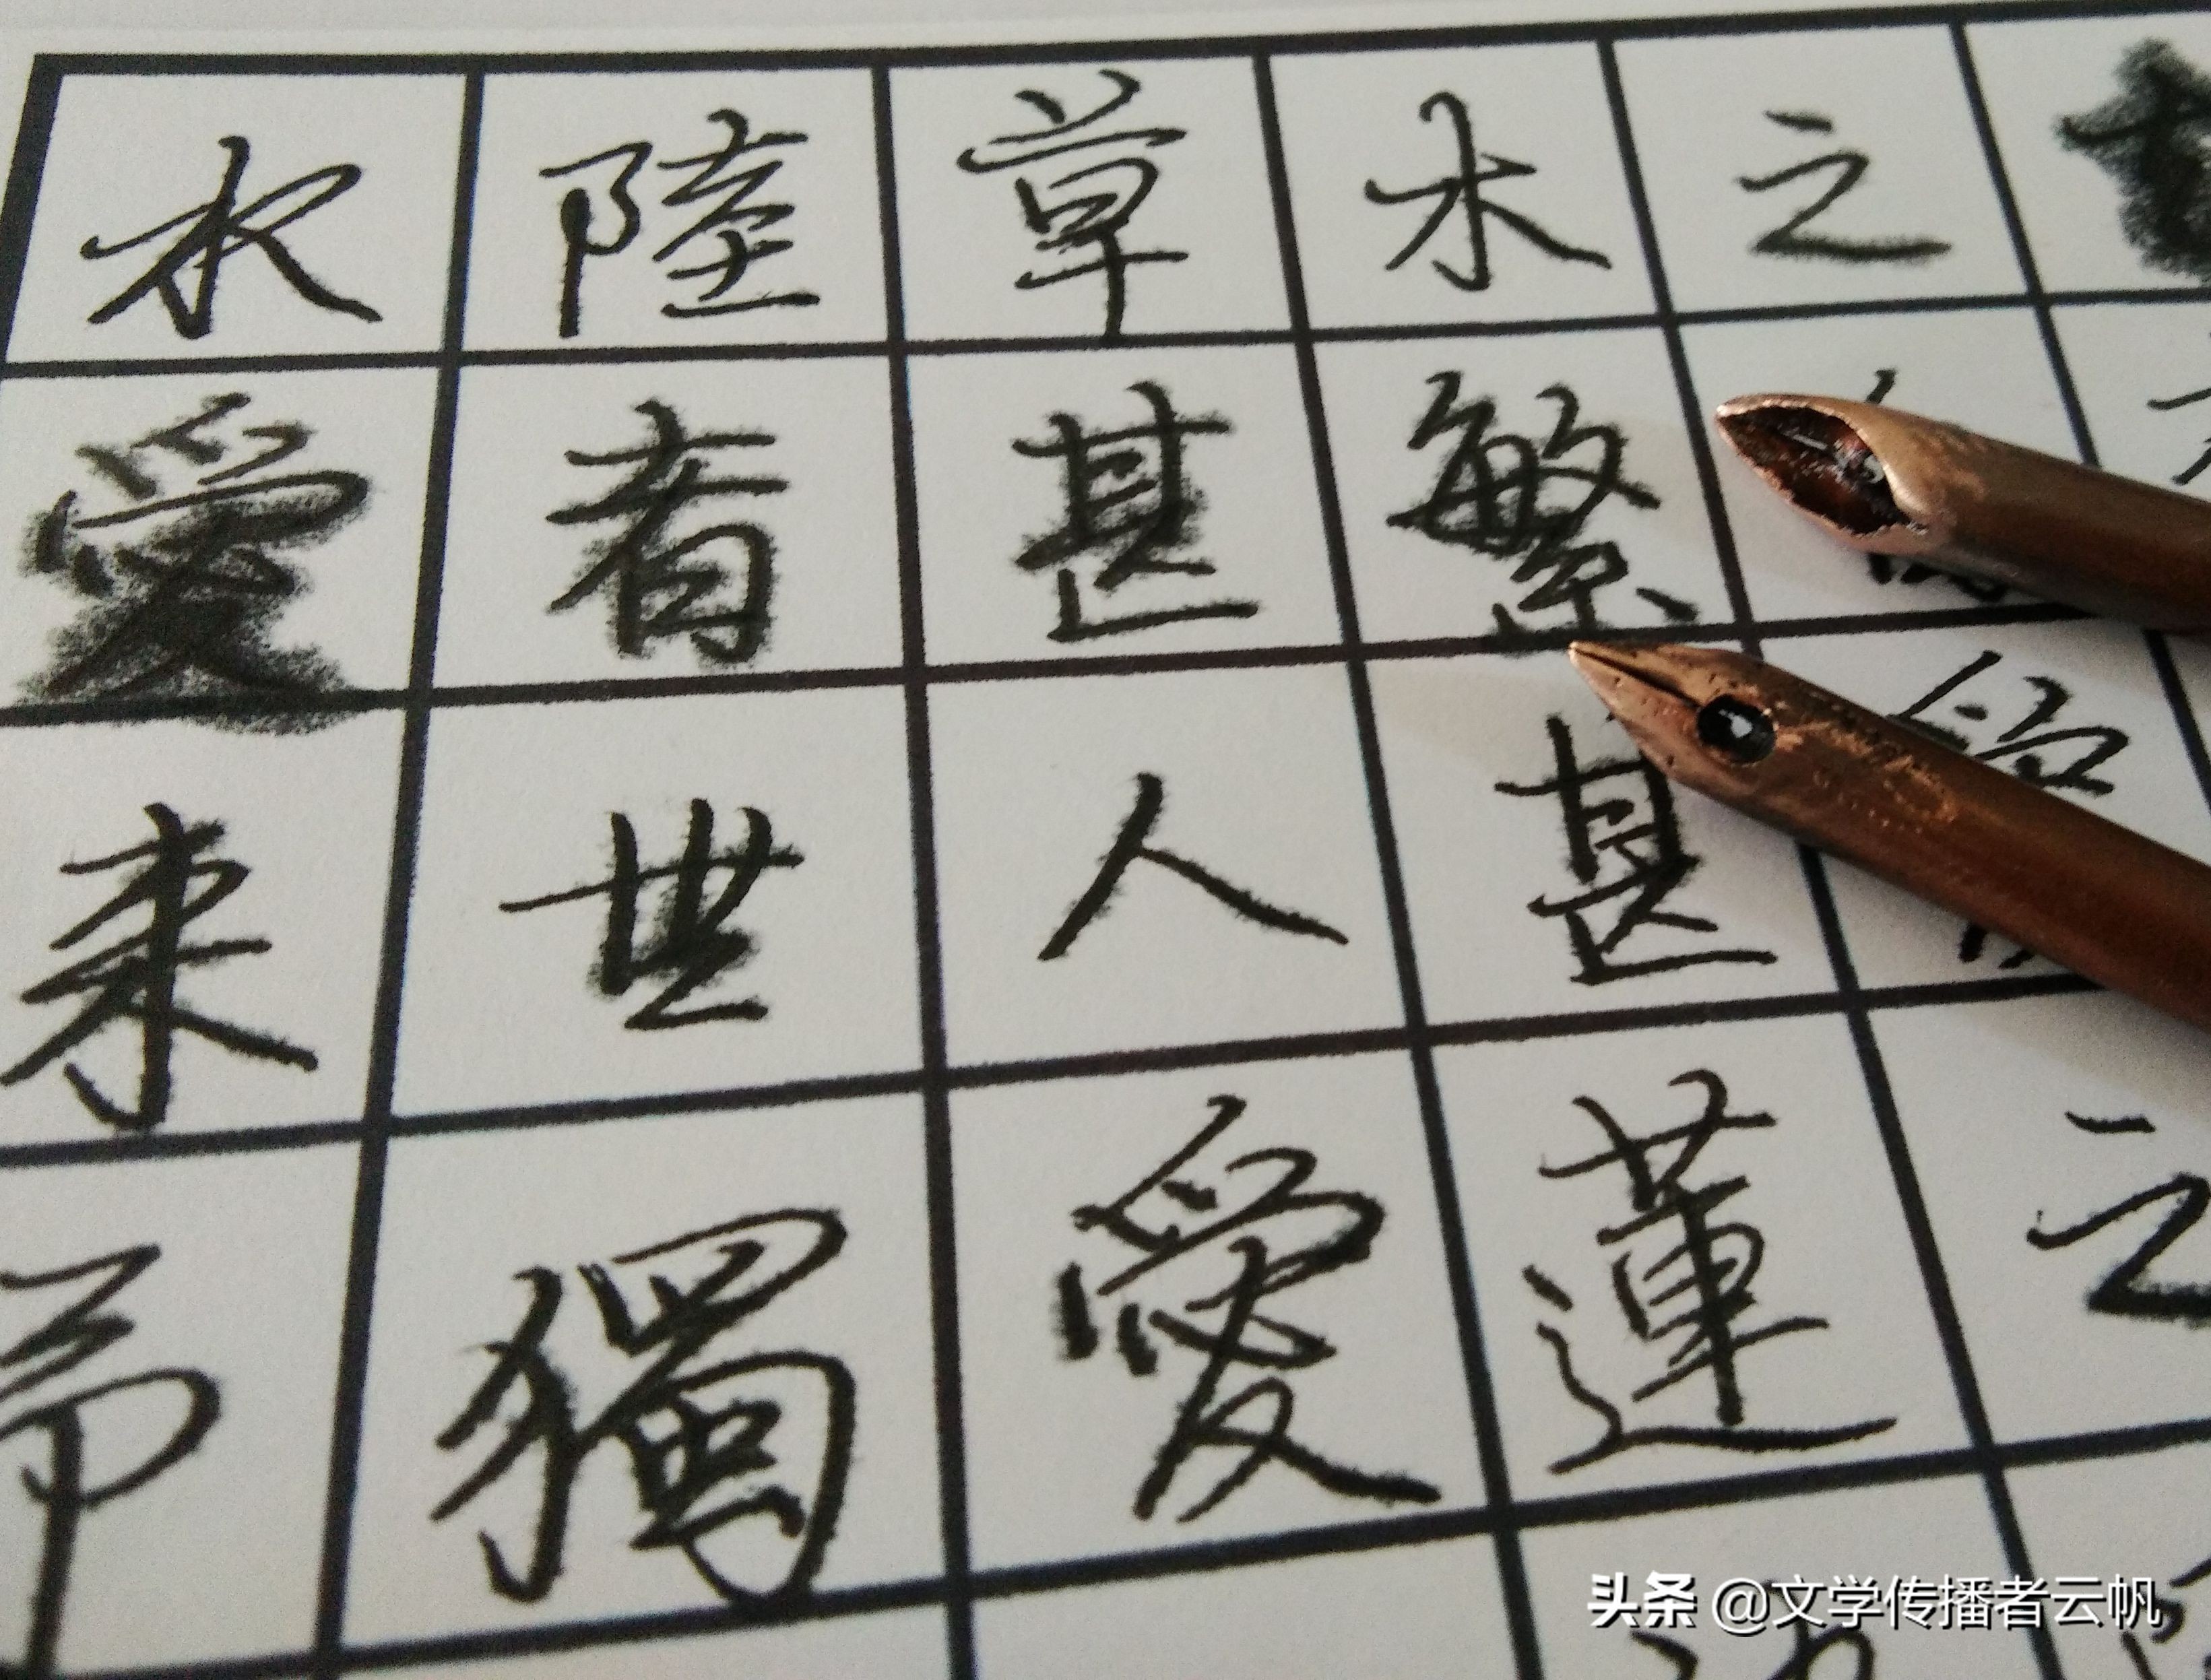 水陸草木之
愛者甚繁
来世人甚
予獨愛蓮之
头条 @文学传播者云帆